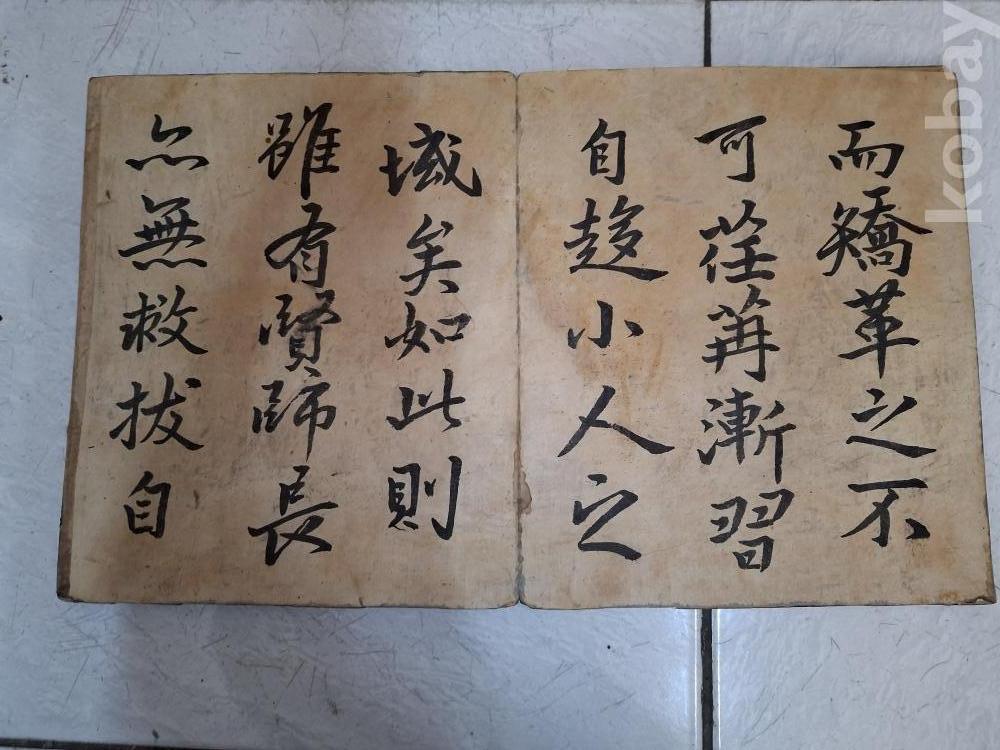 而矯革之不
可荏苒漸習
自趍小人之
域矣如此則
雖有賢師長
亦無救拔自
kobay